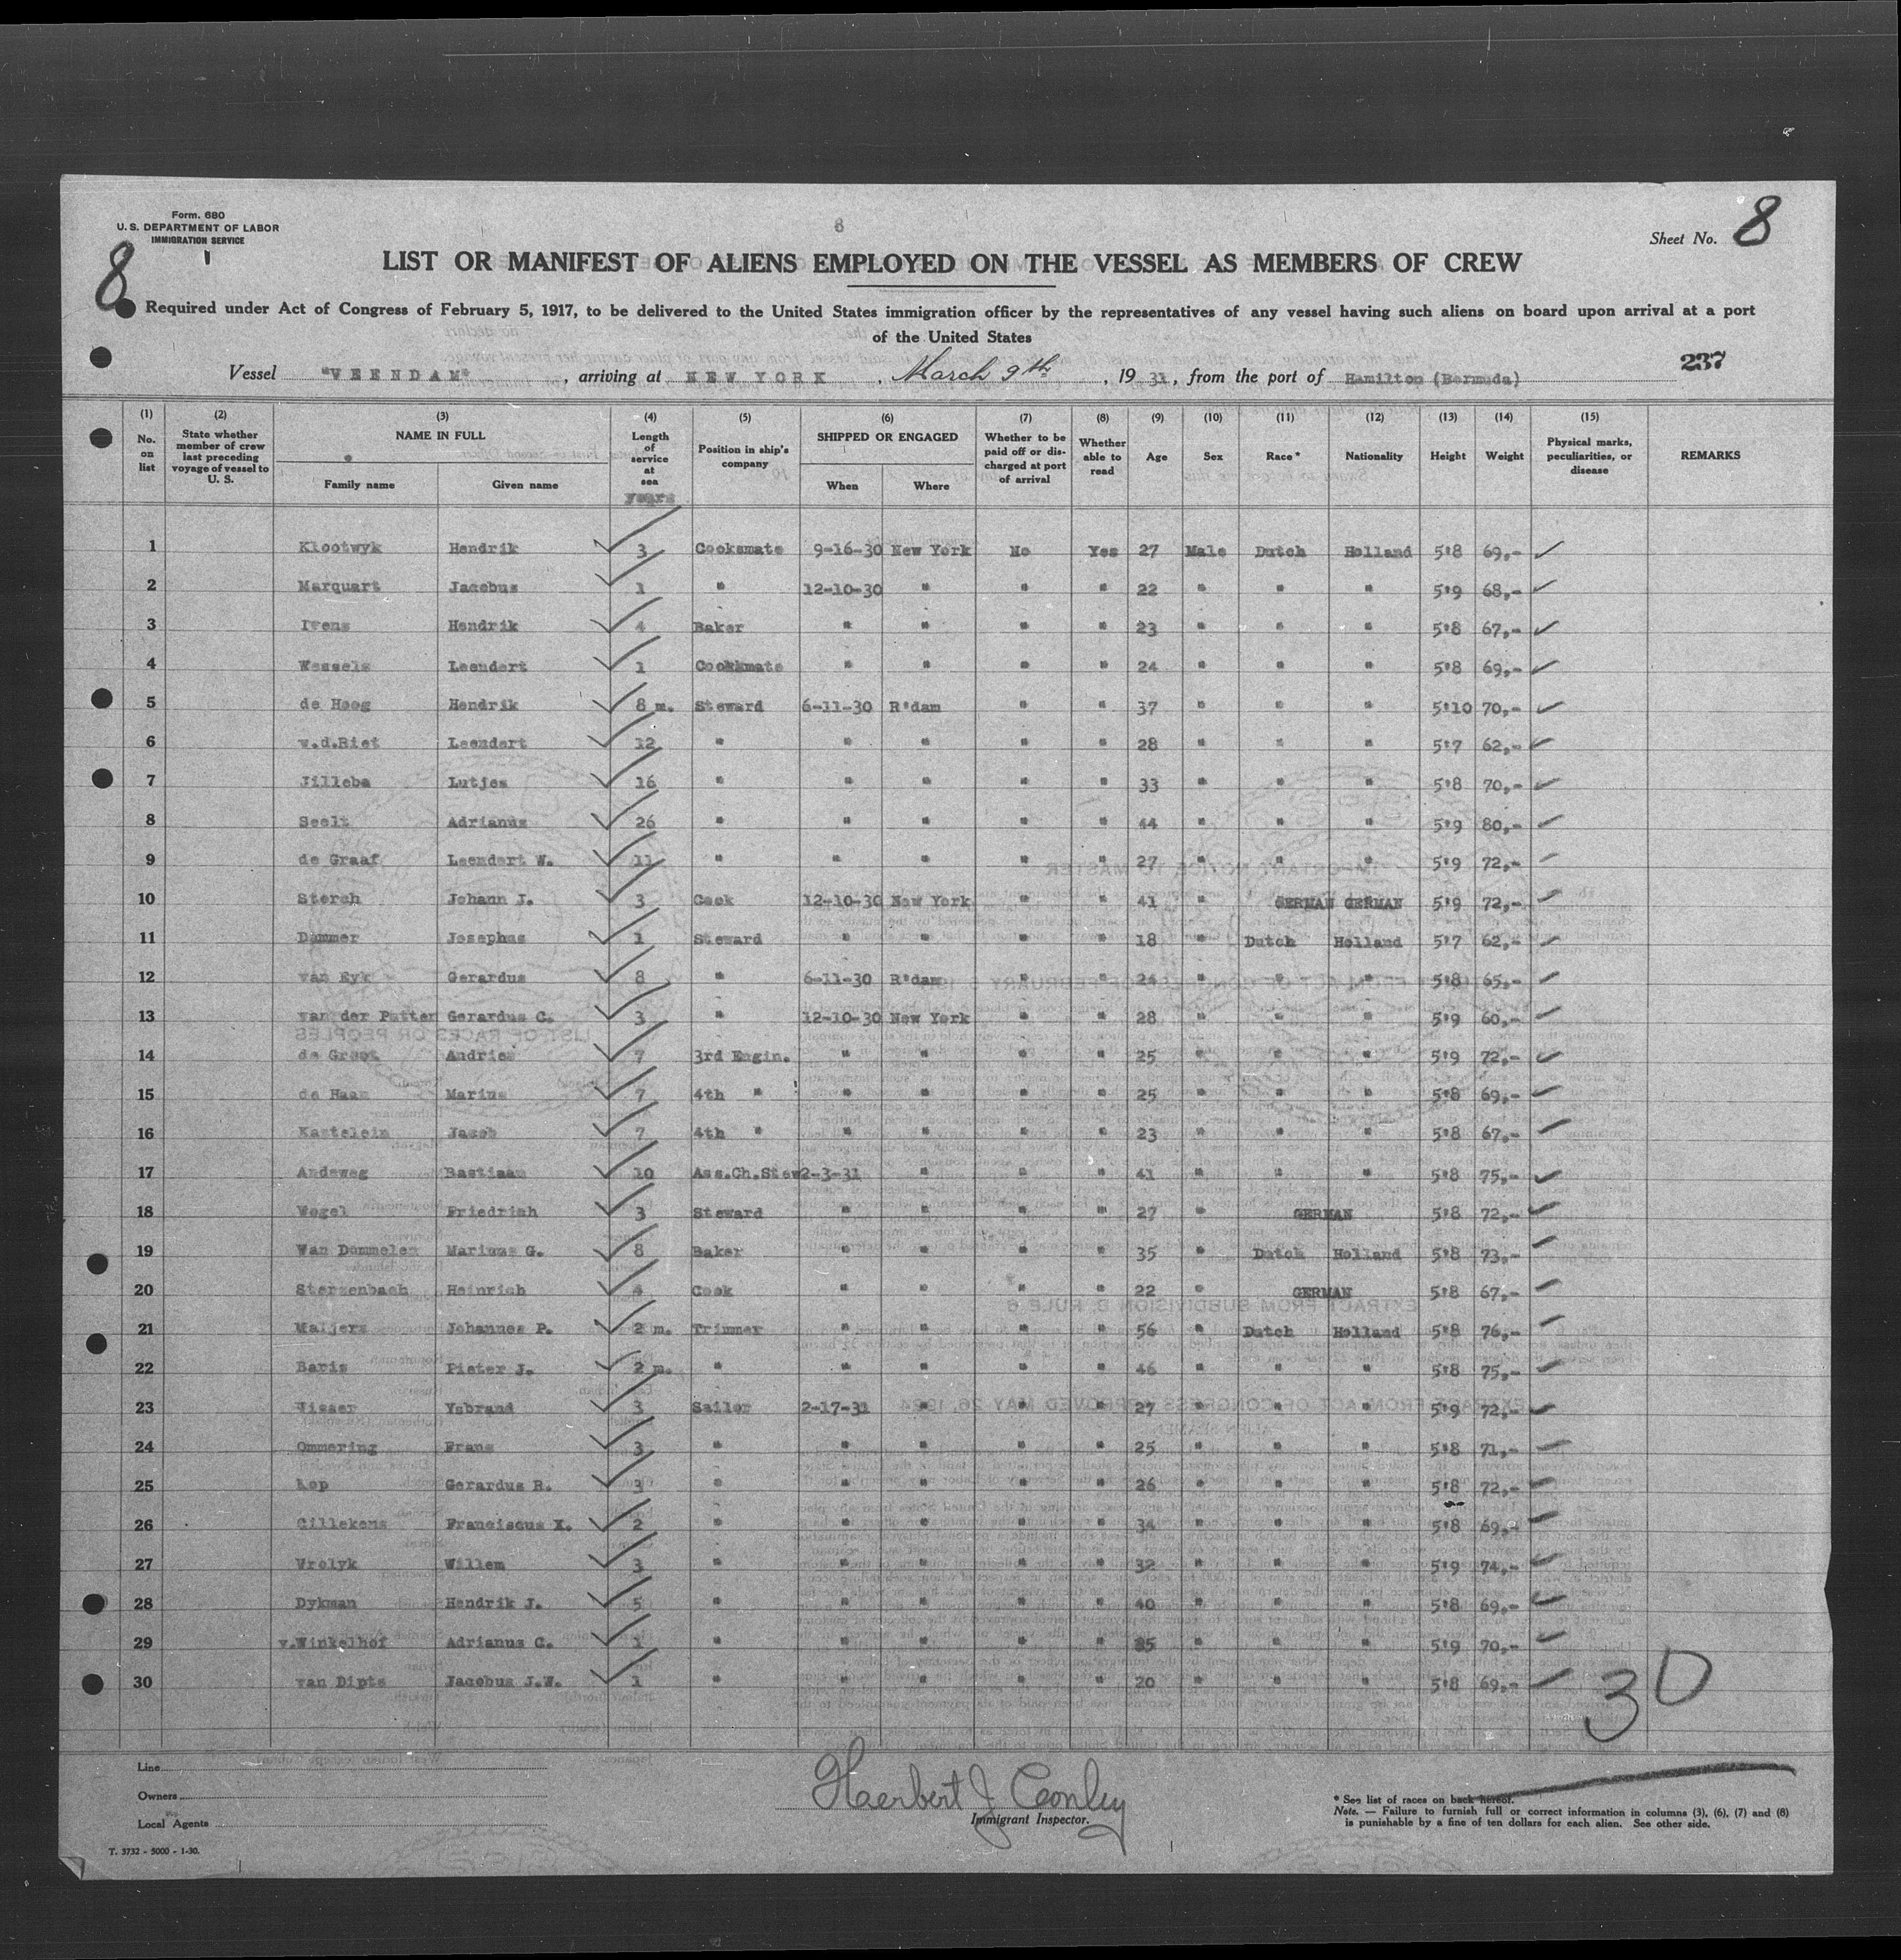 Form. 680
U. S. DEPARTMENT OF LABOR
IMMIGRATION SERVICE
8
8
Sheet No. 8
LIST OR MANIFEST OF ALIENS EMPLOYED ON THE VESSEL AS MEMBERS OF CREW
Required under Act of Congress of February 5, 1917, to be delivered to the United States immigration officer by the representatives of any vessel having such aliens on board upon arrival at a port
of the United States
237
Vessel "VEENDAM", arriving at NEW YORK, March 9th, 1931, from the port of Hamilton (Bermuda)
(1) No. on list (2) State whether member of crew last preceding voyage of vessel to U. S. (3) NAME IN FULL Family name Given name (4) Length of service at sea years (5) Position in ship's company (6) SHIPPED OR ENGAGED When Where (7) Whether to be paid off or discharged at port of arrival (8) Whether able to read (9) Age (10) Sex (11) Race* (12) Nationality (13) Height (14) Weight (15) Physical marks, peculiarities, or disease REMARKS
1 Klootwyk Hendrik 3 Cooksmate 9-16-30 New York No Yes 27 Male Dutch Holland 5'8 69,-
2 Marquart Jacobus 1 " 12-10-30 " " " 22 " " " 5'9 68,-
3 Ivens Hendrik 4 Baker " " " " 23 " " " 5'8 67,-
4 Wessels Leendert 1 Cooksmate " " " " 24 " " " 5'8 69,-
5 de Hoog Hendrik 8 m. Steward 6-11-30 R'dam " " 37 " " " 5'10 70,-
6 v.d.Riet Leendert 12 " " " " " 28 " " " 5'7 62,-
7 Jilleba Lutjes 16 " " " " " 33 " " " 5'8 70,-
8 Seelt Adrianus 26 " " " " " 44 " " " 5'9 80,-
9 de Graaf Leendert W. 11 " " " " " 27 " " " 5'9 72,-
10 Storch Johann J. 3 Cook 12-10-30 New York " " 41 " GERMAN GERMAN 5'9 72,-
11 Dammer Josephus 1 Steward " " " " 18 " Dutch Holland 5'7 62,-
12 van Eyk Gerardus 8 " 6-11-30 R'dam " " 24 " " " 5'8 65,-
13 van der Putten Gerardus C. 3 " 12-10-30 New York " " 28 " " " 5'9 60,-
14 de Groot Andries 7 3rd Engin. " " " " 25 " " " 5'9 72,-
15 de Haan Marius 7 4th " " " " " 25 " " " 5'8 69,-
16 Kastelein Jacob 7 4th " " " " " 23 " " " 5'8 67,-
17 Andeweg Bastiaan 10 Ass.Ch.Stew 2-3-31 " " " 41 " " " 5'8 75,-
18 Vogel Friedrich 3 Steward " " " " 27 " GERMAN 5'8 72,-
19 Van Dommelen Marinus G. 8 Baker " " " " 35 " Dutch Holland 5'8 73,-
20 Sterzenbach Heinrich 4 Cook " " " " 22 " GERMAN 5'8 67,-
21 Maljers Johannes P. 2 m. Trimmer " " " " 56 " Dutch Holland 5'8 76,-
22 Baris Pieter J. 2 m. " " " " " 46 " " " 5'8 75,-
23 Visser Ysbrand 3 Sailor 2-17-31 " " " 27 " " " 5'9 72,-
24 Ommering Frans 3 " " " " " 25 " " " 5'8 71,-
25 Kop Gerardus R. 3 " " " " " 26 " " " 5'8 72,-
26 Cillekens Franciscus X. 2 " " " " " 34 " " " 5'8 69,-
27 Vrolyk Willem 3 " " " " " 32 " " " 5'9 74,-
28 Dykman Hendrik J. 5 " " " " " 40 " " " 5'8 69,-
29 v.Winkelhof Adrianus C. 1 " " " " " 35 " " " 5'9 70,-
30 van Dipts Jacobus J.W. 1 " " " " " 20 " " " 5'8 69,-
30
Line
Owners
Local Agents
Herbert J Conley
Immigrant Inspector.
* See list of races on back hereof.
Note. — Failure to furnish full or correct information in columns (3), (6), (7) and (8)
is punishable by a fine of ten dollars for each alien. See other side.
T. 3732 - 5000 - 1-30.